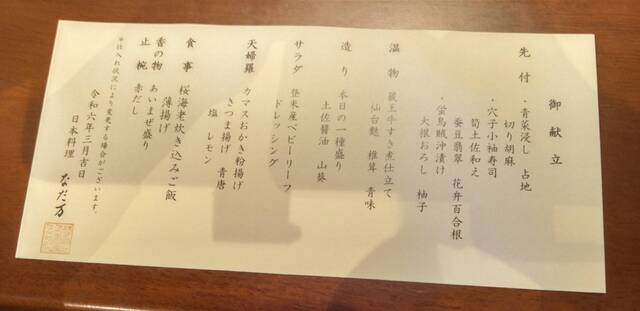 御献立
先付 ・青菜浸し 占地
切り胡麻
・穴子小袖寿司
筍土佐和え
蚕豆翡翠 花弁百合根
・蛍烏賊沖漬け
大根おろし 柚子
温物 蔵王牛すき煮仕立て
仙台麩 椎茸 青味
造り 本日の一種盛り
土佐醤油 山葵
サラダ 登米産ベビーリーフ
ドレッシング
天婦羅 カマスおかき粉揚げ
きつま揚げ 青唐
塩 レモン
食事 桜海老炊き込みご飯
薄揚げ
香の物 あいまぜ盛り
止椀 赤だし
※仕入れ状況により変更する場合がございます。
令和六年三月吉日
日本料理 なだ万